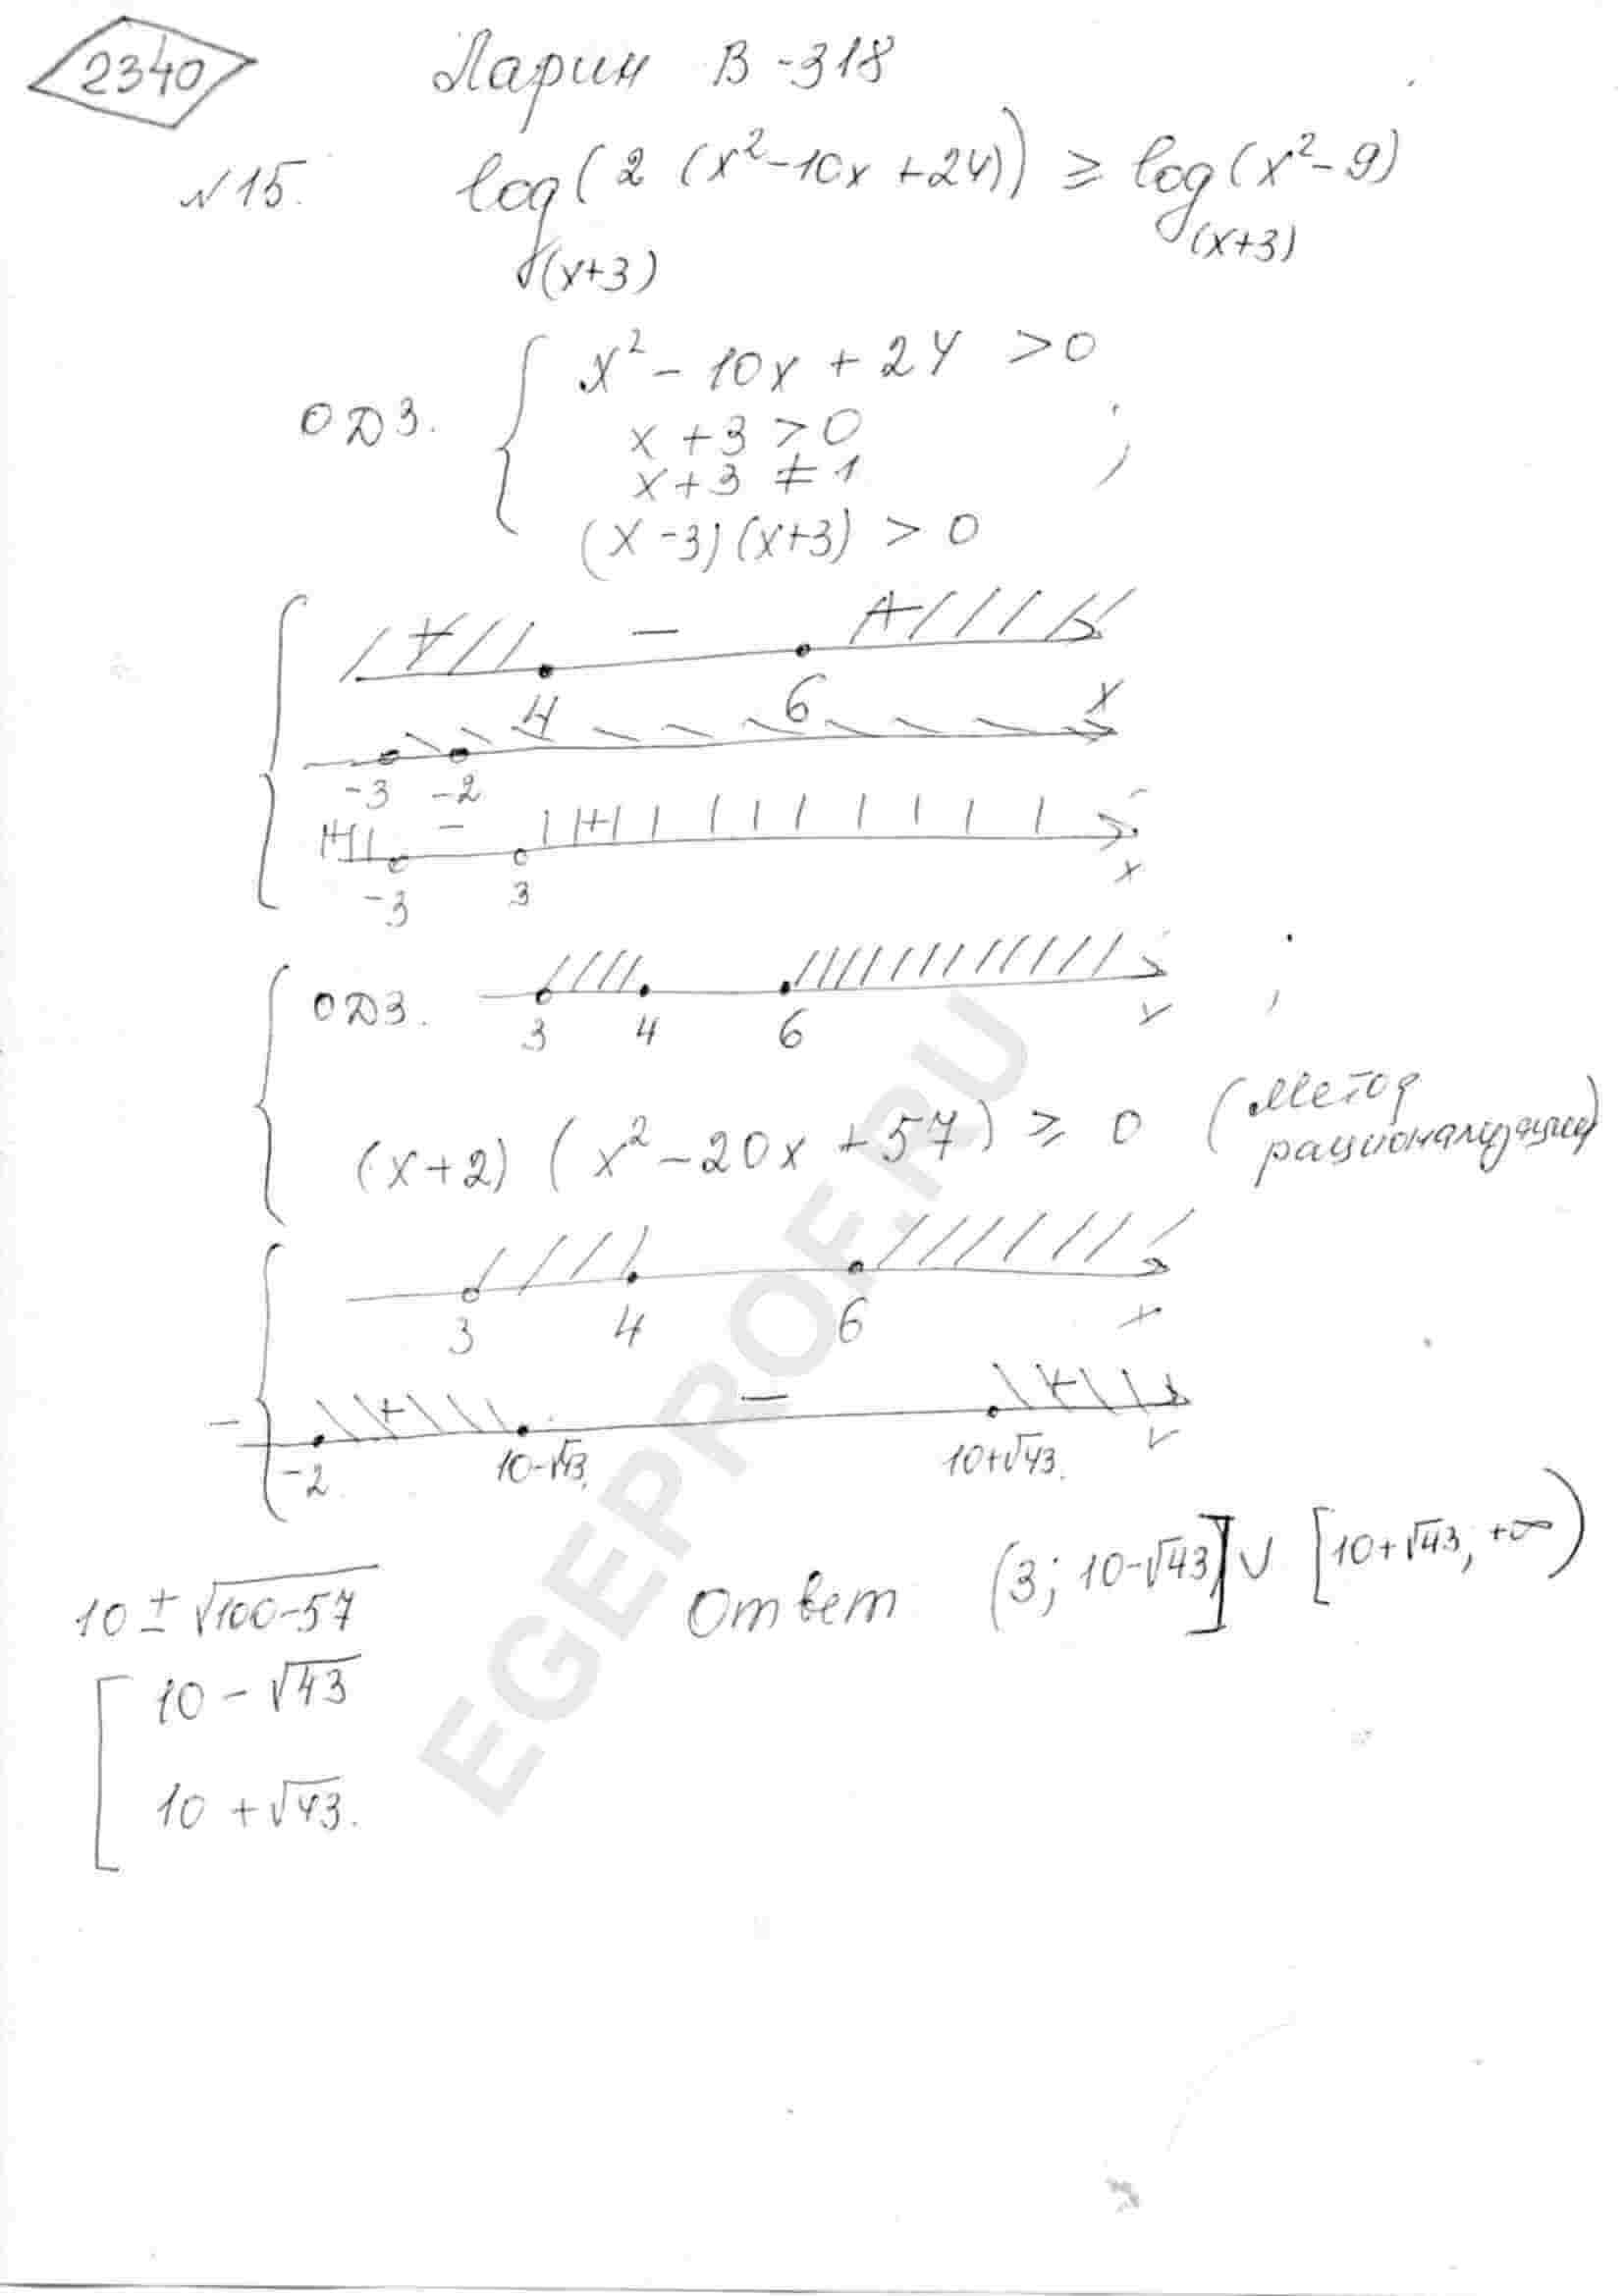 2340
Ларин В-318
№15. log(2 (x²-10x+24)) ≥ log(x²-9)
(x+3) (x+3)
ОДЗ. { x² - 10x + 24 > 0
x + 3 > 0
x + 3 ≠ 1 ;
(x-3)(x+3) > 0
+ - +
4 6 x
-3 -2
+ - +
-3 3 x
ОДЗ. 3 4 6 x ;
(x+2) (x² - 20x + 57) ≥ 0 (Метод
рационализации)
3 4 6 x
- + - +
-2 10-√43 10+√43. x
10 ± √100-57
Ответ (3; 10-√43] ∪ [10+√43; +∞)
[ 10 - √43
10 + √43.
EGEPROF.RU